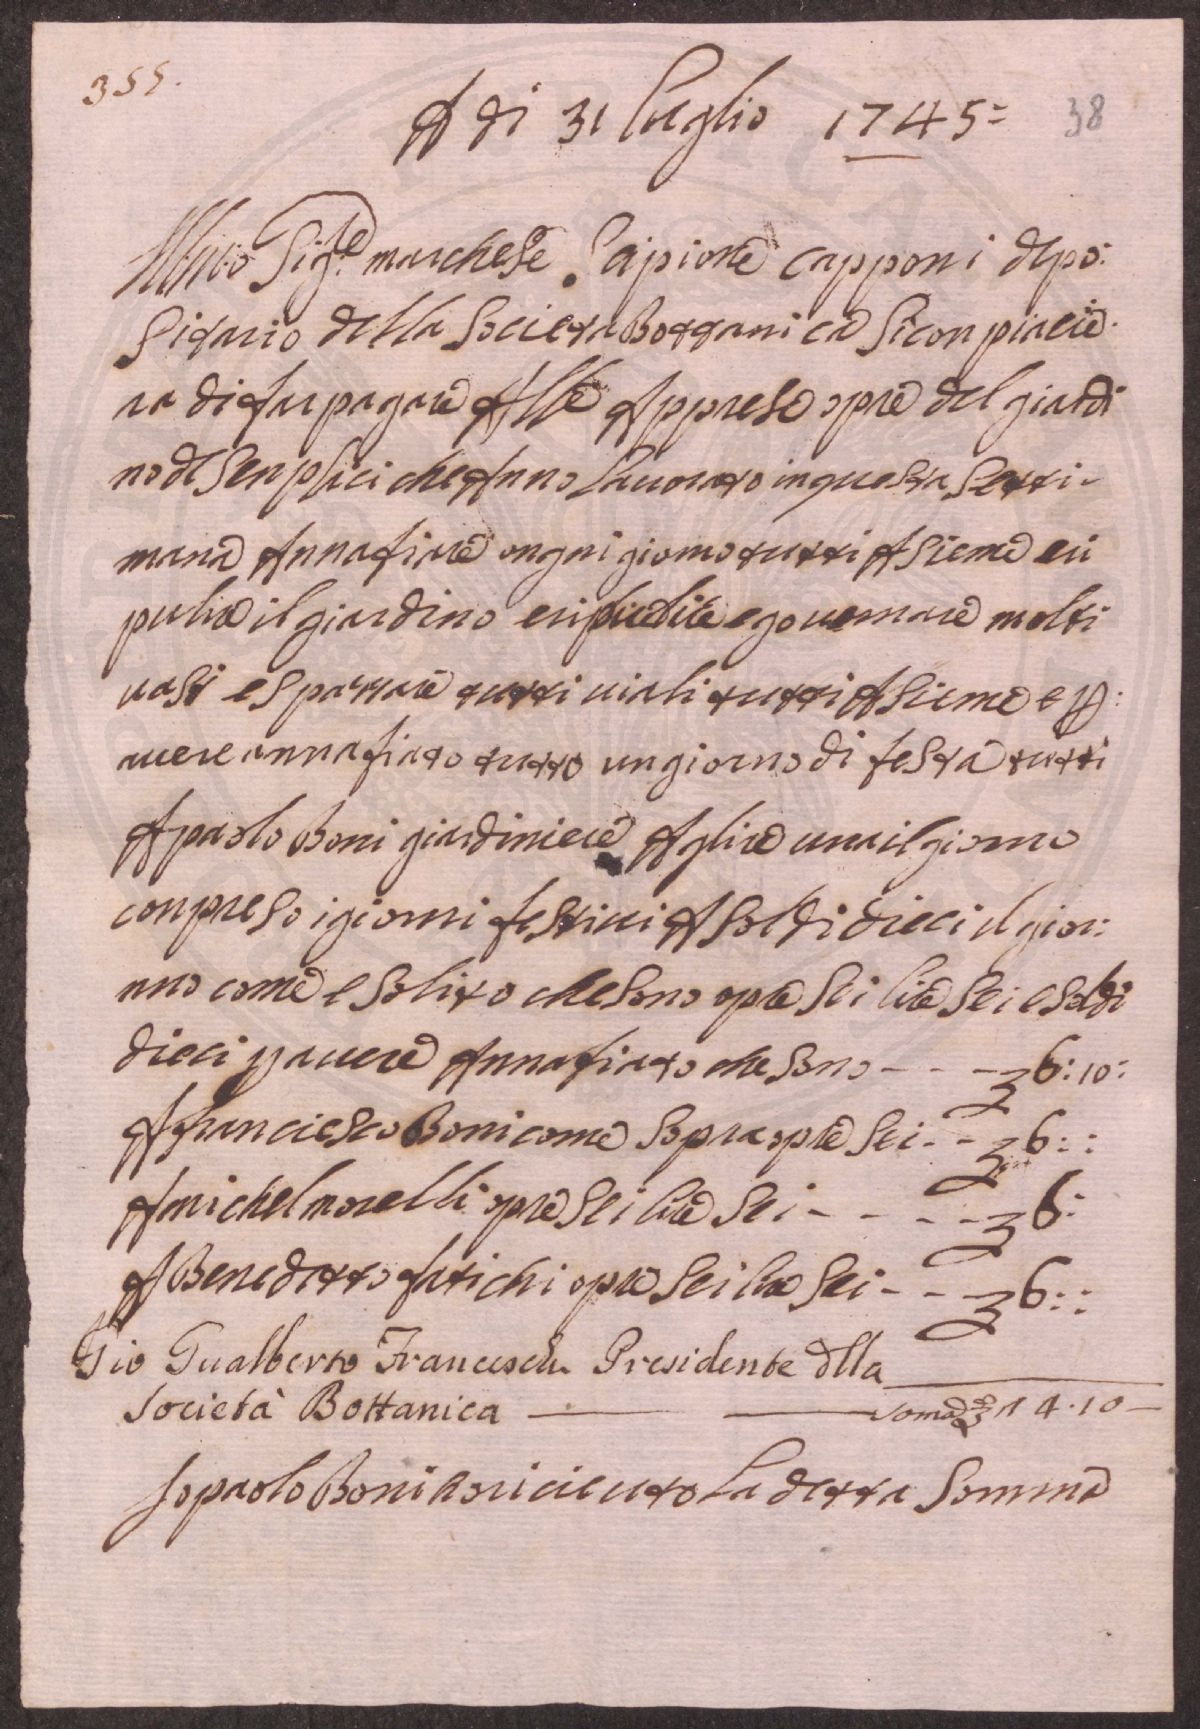 355.
A di 31 luglio 1745=
38
Illmo Sigre marchese Scipione capponi depo:
Sitario della Societa Bottanica Si conpiacie
ra di far pagare Alle Apprese opre del giardi
no de Senplici che Anno Lauorato in questa Setti-
mana Annafiare ongni giorno tutti ASieme eri
pulire il giardino eripulire e gouernare molti
uasi e Spazzare tutti uiali tutti ASieme e p:
auere annafiato tutto un giorno di festa tutti
A paolo Boni giardiniere A lire una il giorno
conpreso i giorni festiui A Soldi dieci il gior:
nno come e Solito che Sono opre Sei lire Sei e Soldi
dieci p auere Annafiato che Sono - - - 6:10:
A franciesco Boni come Sopra opre Sei - - 6::
A michel morelli opre Sei lire Sei - - - - 6:
A Benedetto fatichi opre Sei lire Sei - - 6::
Gio Gualberto Franceschi Presidente della
Società Bottanica
Soma 24.10
Io paolo Boni o riceuto La detta Somma